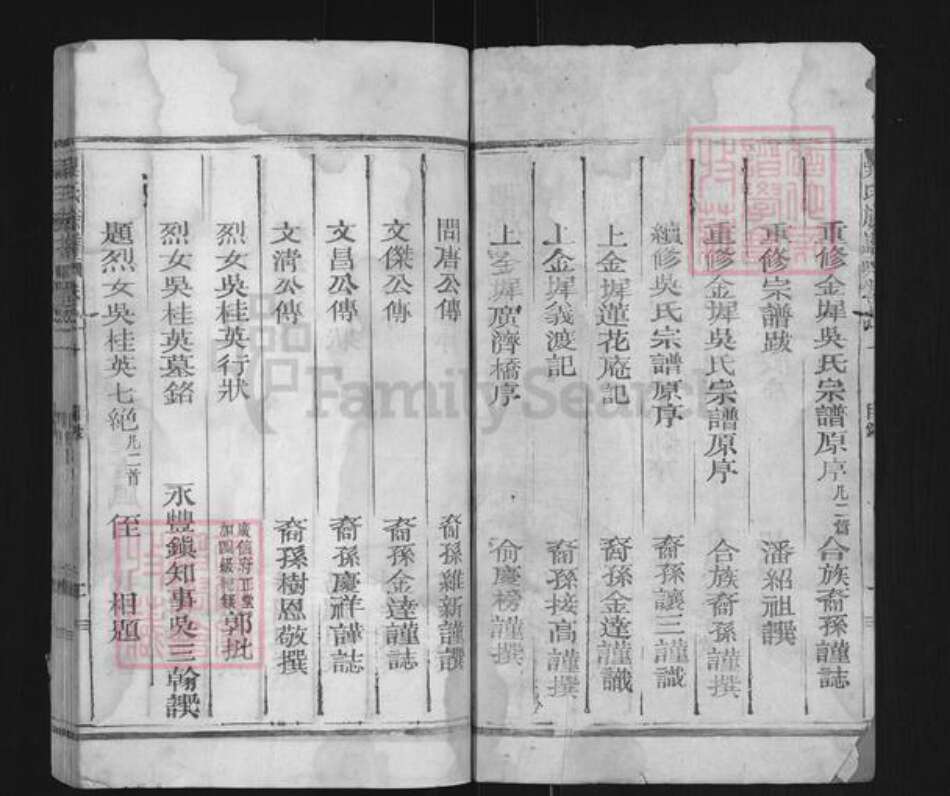 重修金墀吳氏宗譜原序凡二篇 合族裔孫謹誌
重修宗譜跋 潘紹祖譔
重修金墀吳氏宗譜原序 合族裔孫謹撰
續修吳氏宗譜原序 裔孫讓三謹識
上金墀蓮花庵記 裔孫金達謹識
上金墀義渡記 裔孫接高謹撰
上金墀廣濟橋序 俞慶榜謹撰
間唐公傳 裔孫維新謹譔
文傑公傳 裔孫金達謹誌
文昌公傳 裔孫慶祥謹誌
文清公傳 裔孫樹恩敬撰
烈女吳桂英行狀 廣信府正堂加四級紀錄郭批
烈女吳桂英墓銘 永豐鎮知事吳三翰譔
題烈女吳桂英七絕凡二首 侄相題
FamilySearch